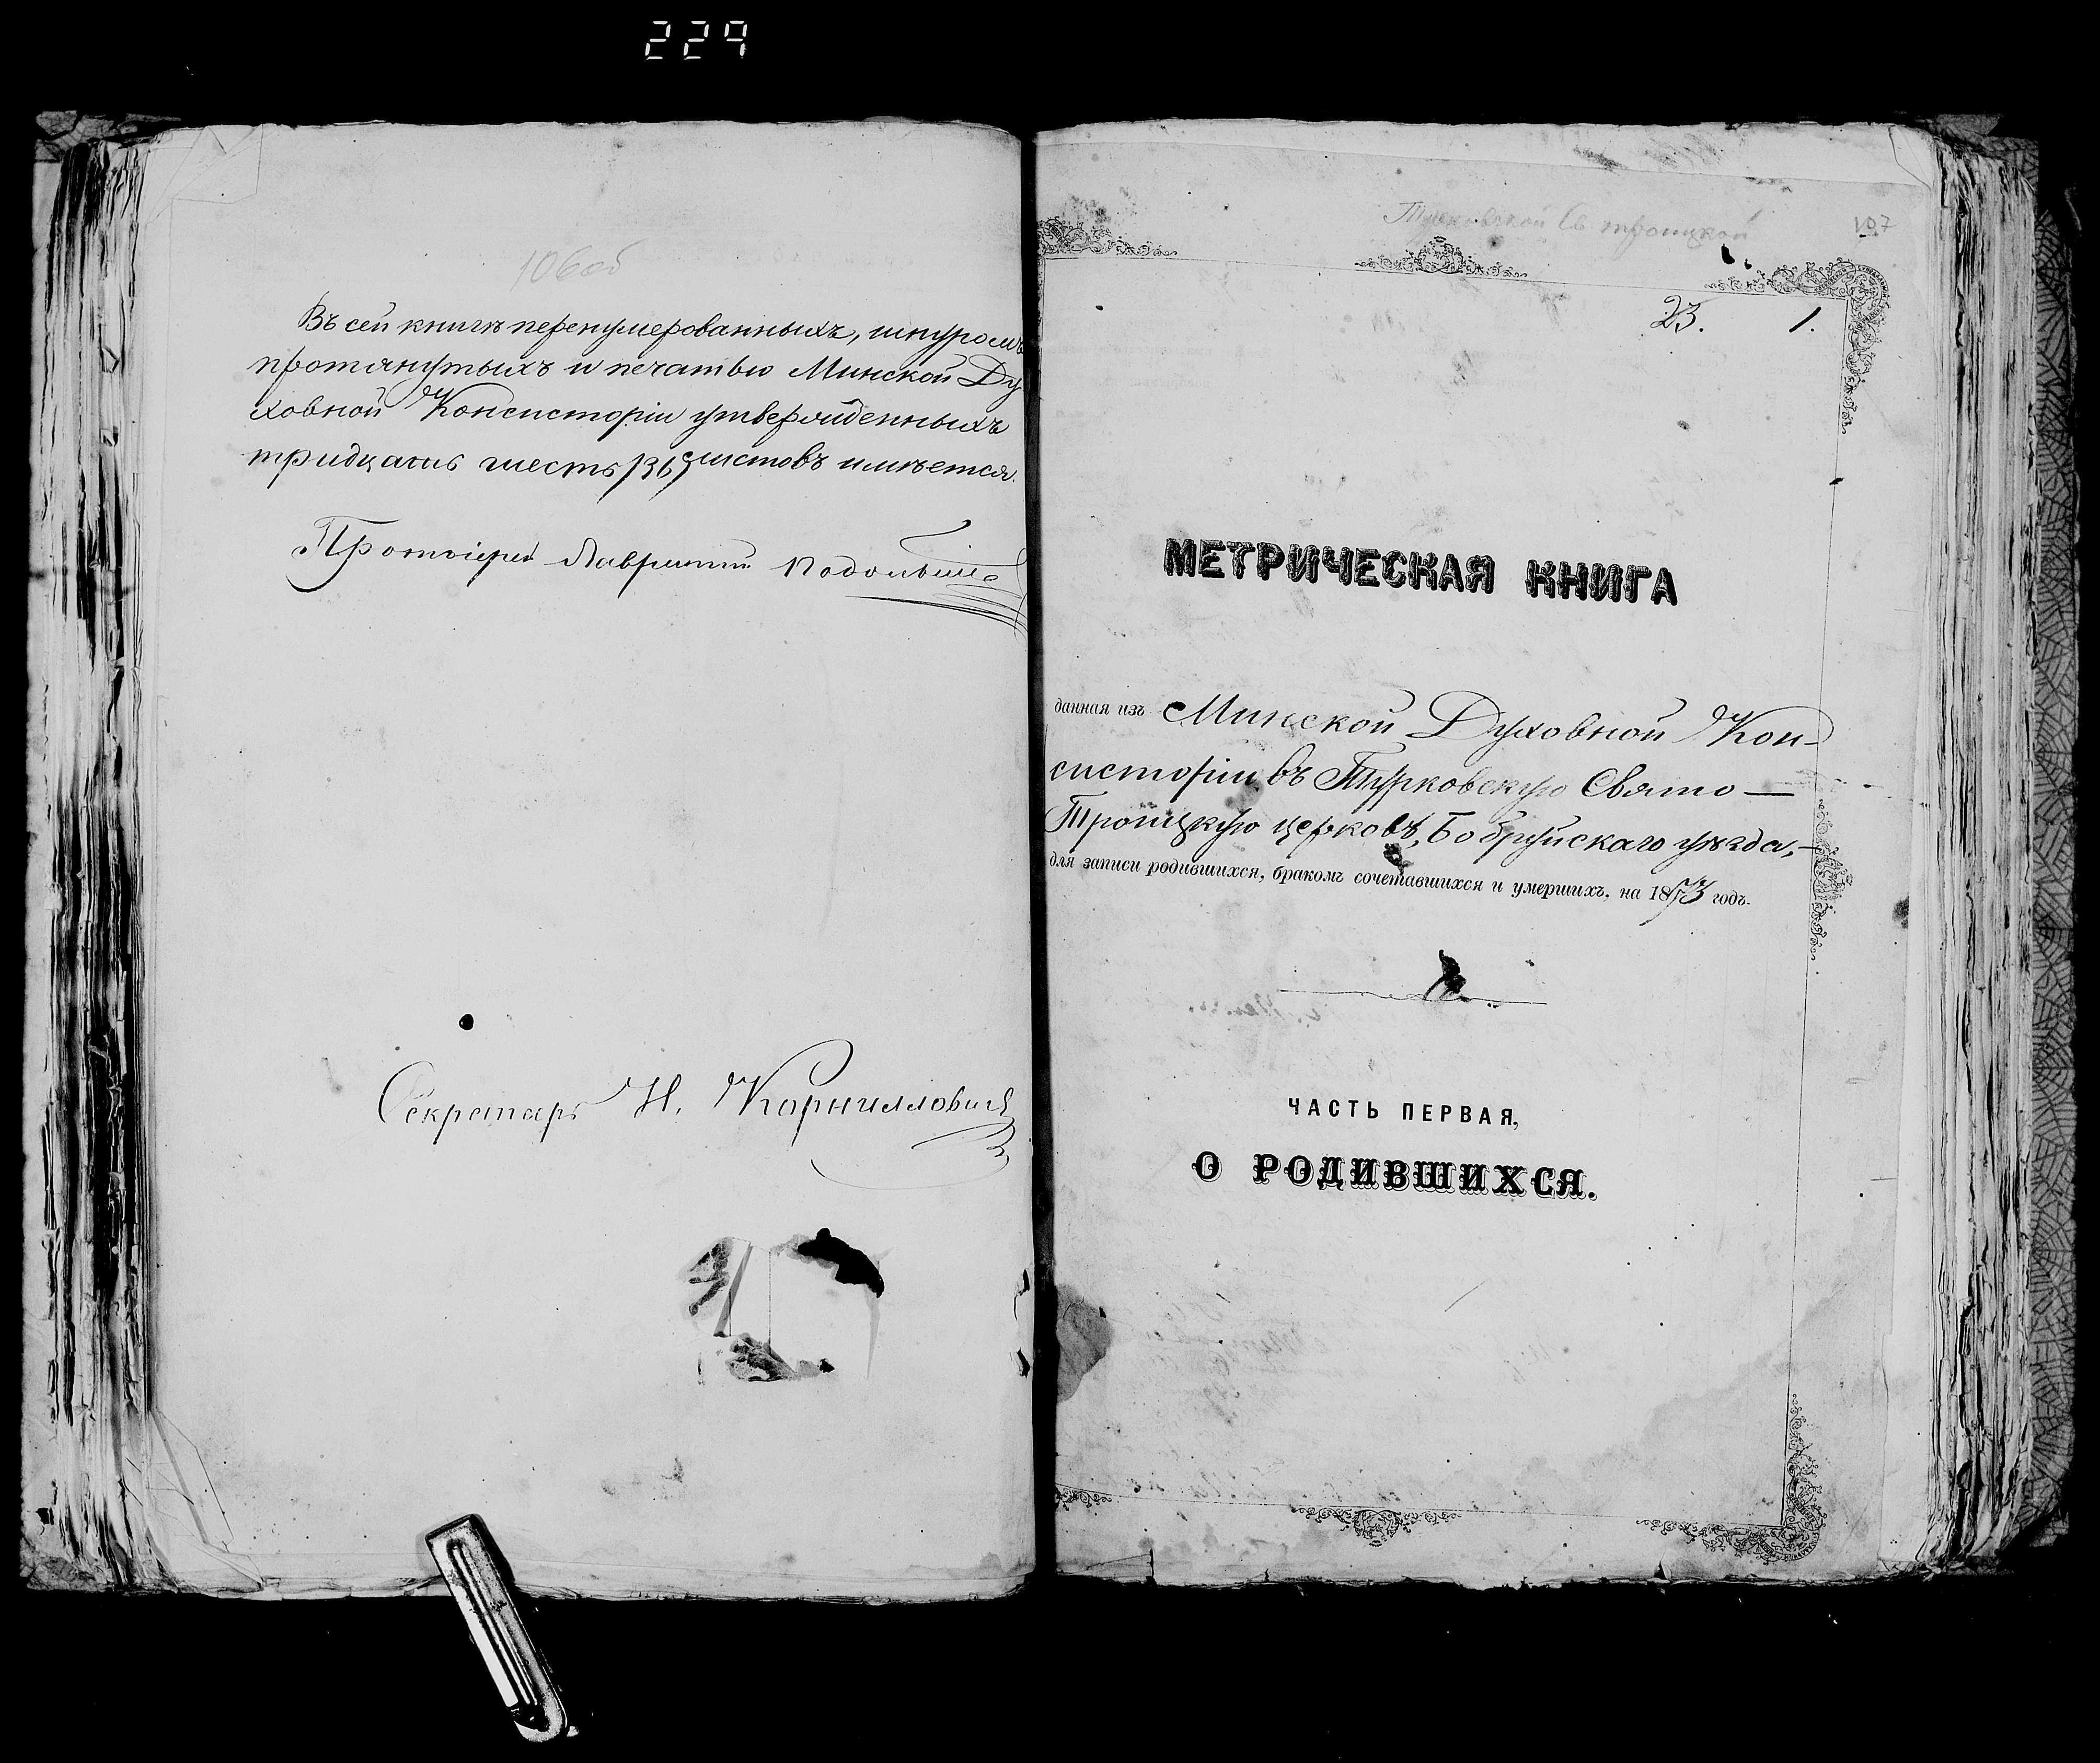 229
106об
Въ сей книгѣ перенумерованныхъ, шнуромъ
протянутыхъ и печатью Минской Ду
ховной Консисторіи утвержденныхъ
тридцать шесть /36/ листовъ имѣется.
Протоіерей Лаврентій
Секретарь Н. Корниловичъ
Турковской Св троицкой
107
23. 1.
МЕТРИЧЕСКАЯ КНИГА
данная изъ Минской Духовной Кон-
систоріи въ Турковскую Свято—
Троицкую церковь, Бобруйскаго уѣзда,—
для записи родившихся, бракомъ сочетавшихся и умершихъ, на 1873 годъ.
ЧАСТЬ ПЕРВАЯ,
О РОДИВШИХСЯ.